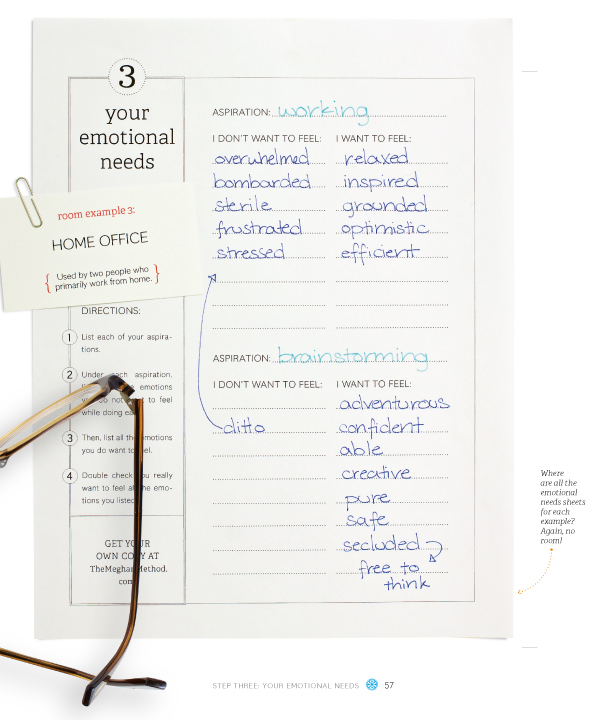 3
your
emotional
needs
room example 3:
HOME OFFICE
{ Used by two people who
primarily work from home. }
DIRECTIONS:
1 List each of your aspira-
tions.
2 Under each aspiration,
emotions
to feel
while doing
3 Then, list all the emotions
you do want to feel.
4 Double check you really
want to feel all the emo-
tions you listed.
GET YOUR
OWN COPY AT
TheMeghanMethod.
com
ASPIRATION: working
I DON'T WANT TO FEEL: I WANT TO FEEL:
overwhelmed relaxed
bombarded inspired
sterile grounded
frustrated optimistic
stressed efficient
ASPIRATION: brainstorming
I DON'T WANT TO FEEL: I WANT TO FEEL:
adventurous
ditto confident
able
creative
pure
safe
secluded
free to
think
Where
are all the
emotional
needs sheets
for each
example?
Again, no
room!
STEP THREE: YOUR EMOTIONAL NEEDS 57